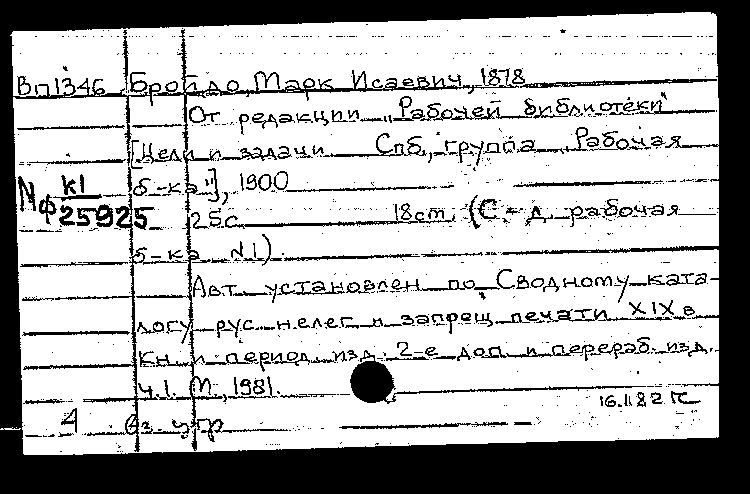 Вп1346 Бройдо, Марк Исаевич, 1878
От редакции „Рабочей библиотеки"
[Цели и задачи Спб, группа „Рабочая
Nф к1 б-ка"], 1900
25925 25с 18ст. (С.-д. рабочая
б-ка N1).
Авт. установлен по Сводному ката-
логу рус. нелег и запрещ печати XIX в
кн и период. изд. 2-е доп и перераб. изд.
ч.1. М., 1981.
16.11 82
4